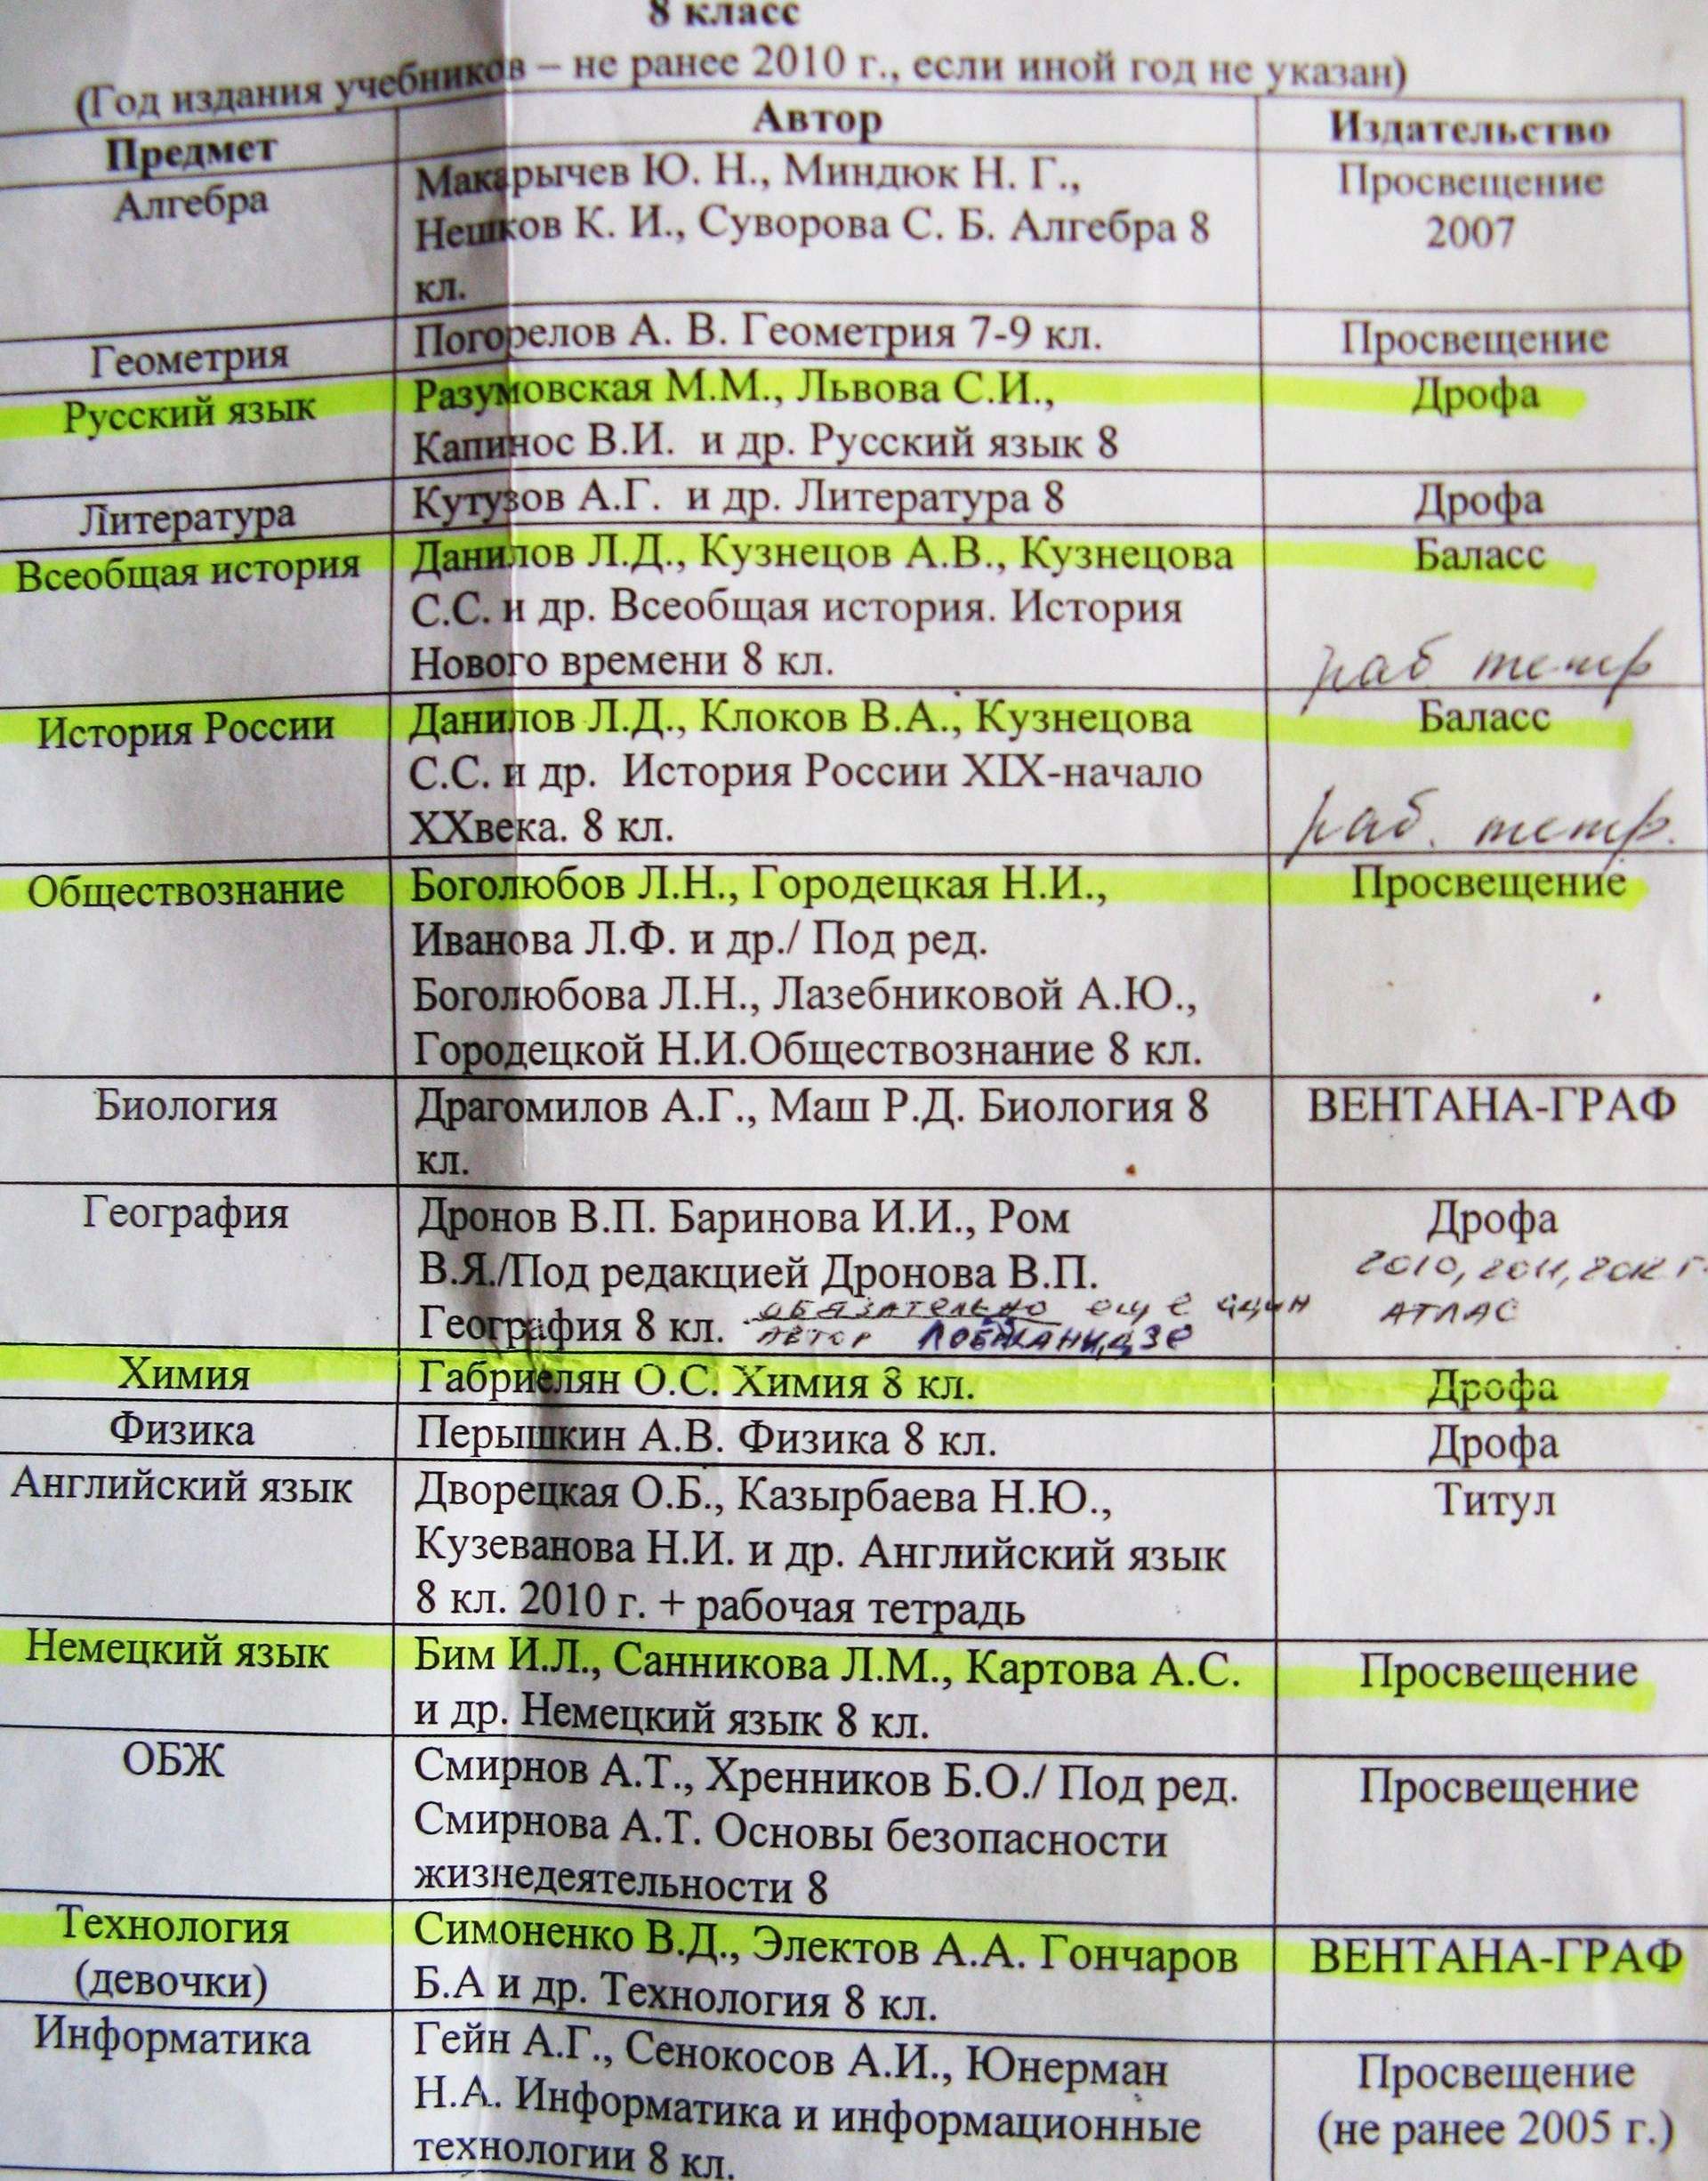 8 класс
(Год издания учебников – не ранее 2010 г., если иной год не указан)
Предмет Автор Издательство
Алгебра Макарычев Ю. Н., Миндюк Н. Г., Просвещение
Нешков К. И., Суворова С. Б. Алгебра 8 2007
кл.
Геометрия Погорелов А. В. Геометрия 7-9 кл. Просвещение
Русский язык Разумовская М.М., Львова С.И., Дрофа
Капинос В.И. и др. Русский язык 8
Литература Кутузов А.Г. и др. Литература 8 Дрофа
Всеобщая история Данилов Л.Д., Кузнецов А.В., Кузнецова Баласс
С.С. и др. Всеобщая история. История
Нового времени 8 кл. раб тетр
История России Данилов Л.Д., Клоков В.А., Кузнецова Баласс
С.С. и др. История России XIX-начало
XXвека. 8 кл. раб. тетр.
Обществознание Боголюбов Л.Н., Городецкая Н.И., Просвещение
Иванова Л.Ф. и др./ Под ред.
Боголюбова Л.Н., Лазебниковой А.Ю.,
Городецкой Н.И.Обществознание 8 кл.
Биология Драгомилов А.Г., Маш Р.Д. Биология 8 ВЕНТАНА-ГРАФ
кл.
География Дронов В.П. Баринова И.И., Ром Дрофа
В.Я./Под редакцией Дронова В.П. 2010, 2011, 2012 г.
География 8 кл. обязательно еще один АТЛАС
автор Лобжанидзе
Химия Габриелян О.С. Химия 8 кл. Дрофа
Физика Перышкин А.В. Физика 8 кл. Дрофа
Английский язык Дворецкая О.Б., Казырбаева Н.Ю., Титул
Кузеванова Н.И. и др. Английский язык
8 кл. 2010 г. + рабочая тетрадь
Немецкий язык Бим И.Л., Санникова Л.М., Картова А.С. Просвещение
и др. Немецкий язык 8 кл.
ОБЖ Смирнов А.Т., Хренников Б.О./ Под ред. Просвещение
Смирнова А.Т. Основы безопасности
жизнедеятельности 8
Технология Симоненко В.Д., Электов А.А. Гончаров ВЕНТАНА-ГРАФ
(девочки) Б.А и др. Технология 8 кл.
Информатика Гейн А.Г., Сенокосов А.И., Юнерман Просвещение
Н.А. Информатика и информационные (не ранее 2005 г.)
технологии 8 кл.